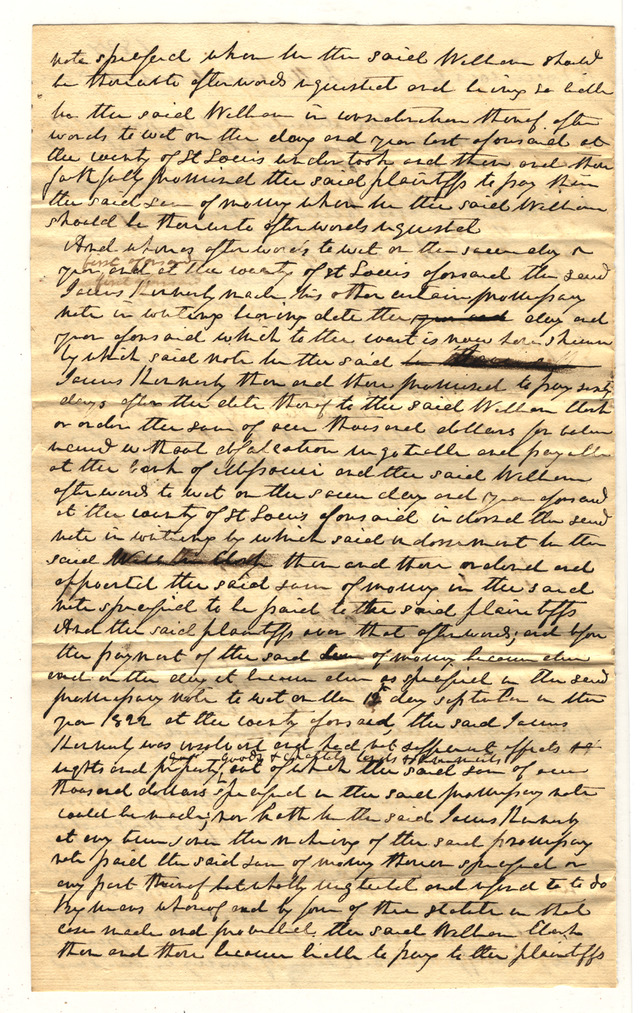 note specified when he the said William should
be thereunto afterwords requested and being so liable
he the said William in consideration thereof after
words to wit on the day and year last aforesaid at
the county of St Louis undertook and then and there
faithfully promised the said plaintiffs to pay them
the said sum of money when he the said William
should be thereunto afterwords requested
And whereas afterwords to wit on the same day &
first aforesaid
year and at the county of St Louis aforesaid the said
James Kennerly made his other certain promissory
note in writing bearing date the year and day and
year aforesaid which to the court is now here shewn
by which said note he the said
James Kennerly then and there promised to pay sixty
days after the date thereof to the said William Clark
or order the sum of one thousand dollars for value
received without defalcation negotiable and payable
at the bank of Missouri and the said William
afterwords to wit on the same day and year aforesaid
at the county of St Louis aforesaid indorsed the said
note in writing by which said indorsement he the
said William Clark then and there ordered and
appointed the said sum of money in the said
note specified to be paid to the said plaintiffs
And the said plaintiffs aver that afterwords, and before
the payment of the said sum of money became due
and on the day it became due as specified in the said
promissory note to wit on the day september in the
year 1822 at the county aforesaid, the said James
Kennerly was insolvent and had not sufficient effects
goods & chattels lands & tenements
rights and property out of which the said sum of one
thousand dollars specified in the said promissory note
could be made; nor hath he the said James Kennerly
at any time since the making of the said promissory
note paid the said sum of money therein specified or
any part thereof but wholly neglected and refused to to do
By means whereof and by force of the statute in that
case made and provided the said William Clark
then and there became liable to pay to the plaintiffs